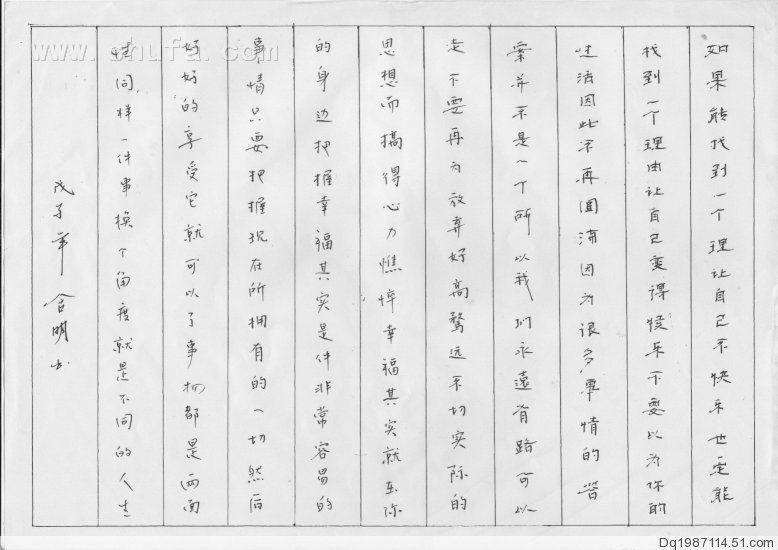 如果能找到一个理让自己不快乐也一定能
找到一个理由让自己变得快乐不要以为你的
生活因此不再圆满因为很多事情的答
案并不是一个所以我们永远有路可以
走不要再为放弃好高骛远不切实际的
思想而搞得心力憔悴幸福其实就在你
的身边把握幸福其实是件非常容易的
事情只要把握现在所拥有的一切然后
好好的享受它就可以了事物都是两面
性同样一件事换个角度就是不同的人生
戊子年 合明书
www.shufa.com
Dq1987114.51.com